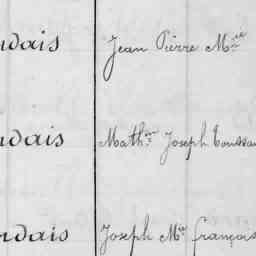 ndais Jean Pierre Mie
ndais Mathin Joseph Toussai
ndais Joseph Mie françois